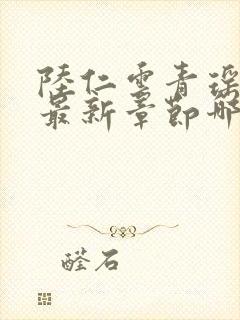 陸仁雲青瑶
最新章節哪
醛石